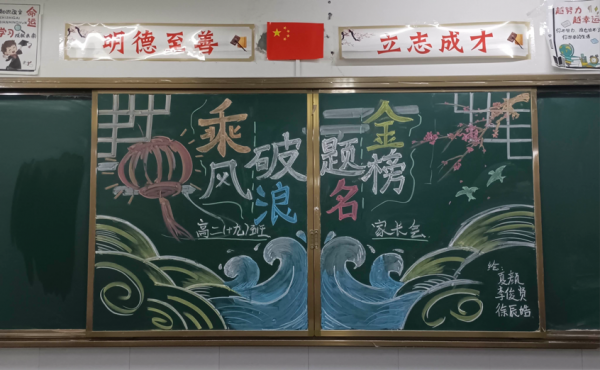 命运
学习
明德至善
立志成才
越努力
越幸运
乘风破浪
金榜题名
高二(十九)班
家长会
绘:
夏颜
李俊贤
徐辰皓